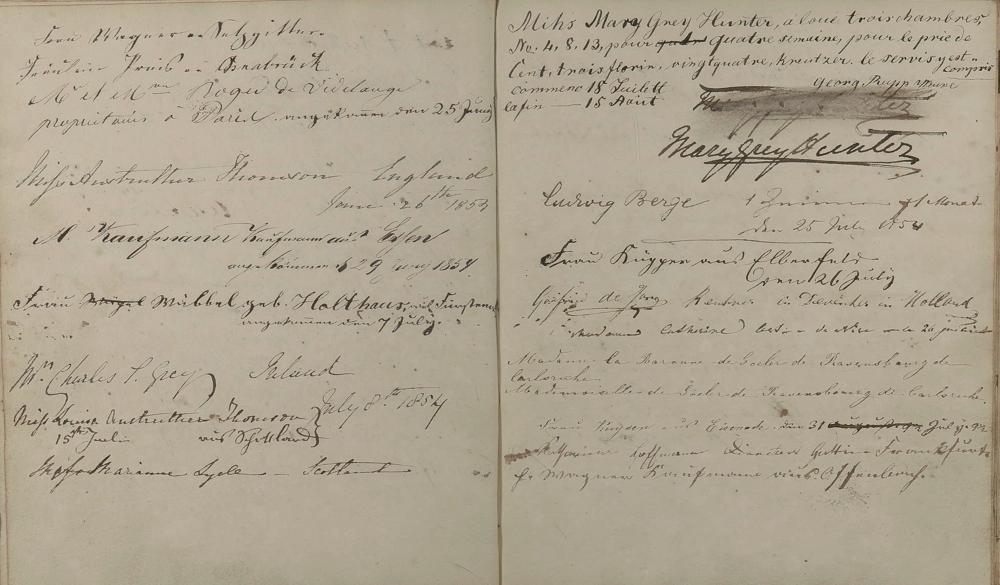 Frau Wagner
Fräulein Preis Osnabrück
Mr et Mme Roger de Videlange
propriétaire à Paris angekommen den 25 Juny
Miss Anstruther Thomson England
June 26th 1854
M. Kaufmann Kaufmann aus Essen
angekommen d 29 Juny 1854
Frau Wübbel geb. Holthaus, aus Fürstenau
angekomen den 7 July.
Mrs Charles S. Grey Ireland
Miss Louisa Anstruther Thomson July 8th 1854
15th Juli aus Schottland
Miss Marianne Lyele Scotland
Mihs Mary Grey Hunter, à loué trois chambres
No. 4. 8. 13, pour quatre semaine, pour le prie de
Cent, trois florin, vingtquatre, kreutzer. le servis y est
compris
commenc 18 Juilett Georg Rupp
la fin — 15 Août
Mary Grey Hunter
Ludwig Berge 1 Zimmer 1 Monat
den 25 July 1854
Frau Küpper aus Elberfeld
den 26 July
de Jong Rentner in Deventer in Holland
Madame Catherine de Nice
Madame la Baronne de Goeler de Ravensbourg de
Carlsruhe
Mademoiselle de Goeler de Ravensbourg de Carlsruhe.
Frau aus den 31 July
Hoffmann Frankfurt
Fr. Wagner Kaufmann aus Offenbach.